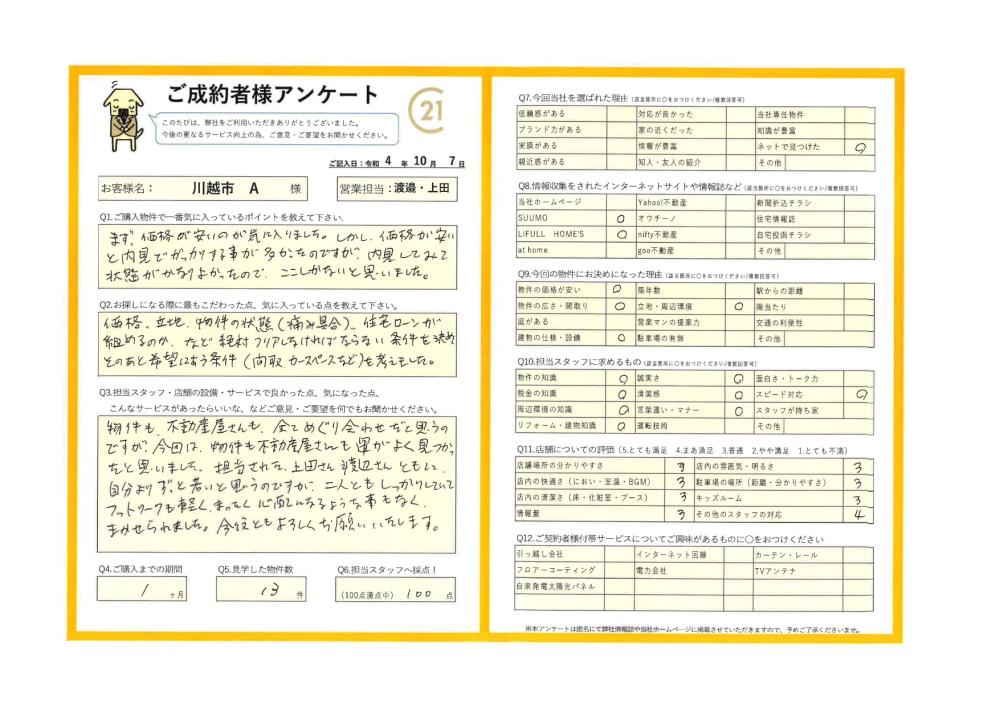 ご成約者様アンケート
21
このたびは、弊社をご利用いただきありがとうございました。
今後の更なるサービス向上の為、ご意見・ご要望をお聞かせください。
ご記入日：令和 4 年 10 月 7 日
お客様名： 川越市 A 様
営業担当：渡邉・上田
Q1.ご購入物件で一番気に入っているポイントを教えて下さい.
まず、価格が安いのが気に入りました。しかし、価格が安い
と内見でがっかりする事が多かったのですが、内見してみて
状態がかなりよかったので、ここしかないと思いました。
Q2.お探しになる際に最もこだわった点、気に入っている点を教えて下さい。
価格。立地、物件の状態（痛み具合）、住宅ローンが
組めるのか、など絶対クリアしなければならない条件を決め
そのあと希望にあう条件（間取 カースペースなど）を考えました。
Q3.担当スタッフ・店舗の設備・サービスで良かった点、気になった点、
こんなサービスがあったらいいな、などご意見・ご要望を何でもお聞かせください。
物件も、不動産屋さんも、全てめぐり合わせだと思うの
ですが、今回は、物件も不動産屋さんも運がよく見つかっ
たと思いました。担当された、上田さん渡辺さんともに、
自分よりずっと若いと思うのですが、二人ともしっかりしていて
フットワークも軽く、まったく心配になるような事もなく、
まかせられました。今後ともよろしくお願いいたします。
Q4.ご購入までの期間
1 ヶ月
Q5.見学した物件数
13 件
Q6.担当スタッフへ採点！
(100点満点中) 100 点
Q7.今回当社を選ばれた理由（該当箇所に○をおつけください/複数回答可）
信頼感がある 対応が良かった 当社専任物件
ブランド力がある 家の近くだった 知識が豊富
実績がある 情報が豊富 ネットで見つけた ○
親近感がある 知人・友人の紹介 その他
Q8.情報収集をされたインターネットサイトや情報誌など（該当箇所に○をおつけください/複数回答可）
当社ホームページ Yahoo!不動産 新聞折込チラシ
SUUMO ○ オウチーノ 住宅情報誌
LIFULL HOME'S ○ nifty不動産 自宅投函チラシ
at home goo不動産 その他
Q9.今回の物件にお決めになった理由（該当箇所に○をおつけください/複数回答可）
物件の価格が安い ○ 築年数 駅からの距離
物件の広さ・間取り ○ 立地・周辺環境 ○ 陽当たり
庭がある 営業マンの提案力 交通の利便性
建物の仕様・設備 ○ 駐車場の有無 その他
Q10.担当スタッフに求めるもの（該当箇所に○をおつけください/複数回答可）
物件の知識 ○ 誠実さ ○ 面白さ・トーク力
税金の知識 ○ 清潔感 ○ スピード対応 ○
周辺環境の知識 ○ 言葉遣い・マナー ○ スタッフが持ち家
リフォーム・建物知識 ○ 運転技術 その他
Q11.店舗についての評価（5.とても満足 4.まあ満足 3.普通 2.やや満足 1.とても不満）
店舗場所の分かりやすさ 店内の雰囲気・明るさ 3
店内の快適さ（におい・室温・BGM） 3 駐車場の場所（距離・分かりやすさ） 3
店内の清潔さ（床・化粧室・ブース） 3 キッズルーム 3
情報量 3 その他のスタッフの対応 4
Q12.ご契約者様付帯サービスについてご興味があるものに○をおつけください
引っ越し会社 インターネット回線 カーテン・レール
フロアーコーティング 電力会社 TVアンテナ
自家発電太陽光パネル
※本アンケートは匿名にて弊社情報誌や当社ホームページに掲載させていただきますので、予めご了承くださいませ。